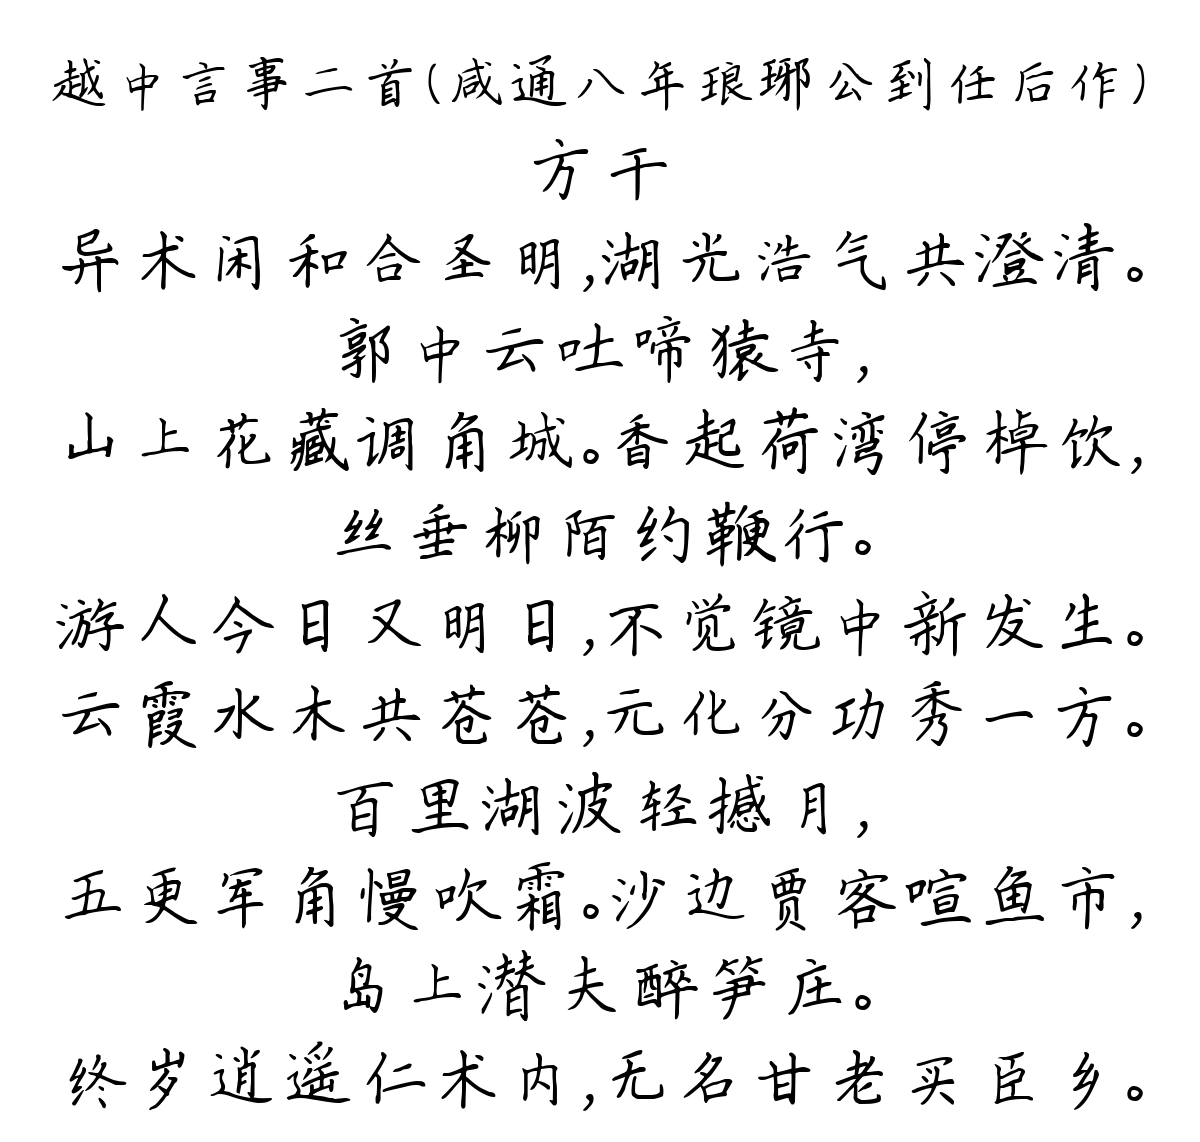 越中言事二首(咸通八年琅琊公到任后作)
方干
异术闲和合圣明,湖光浩气共澄清。
郭中云吐啼猿寺,
山上花藏调角城。香起荷湾停棹饮,
丝垂柳陌约鞭行。
游人今日又明日,不觉镜中新发生。
云霞水木共苍苍,元化分功秀一方。
百里湖波轻撼月,
五更军角慢吹霜。沙边贾客喧鱼市,
岛上潜夫醉笋庄。
终岁逍遥仁术内,无名甘老买臣乡。